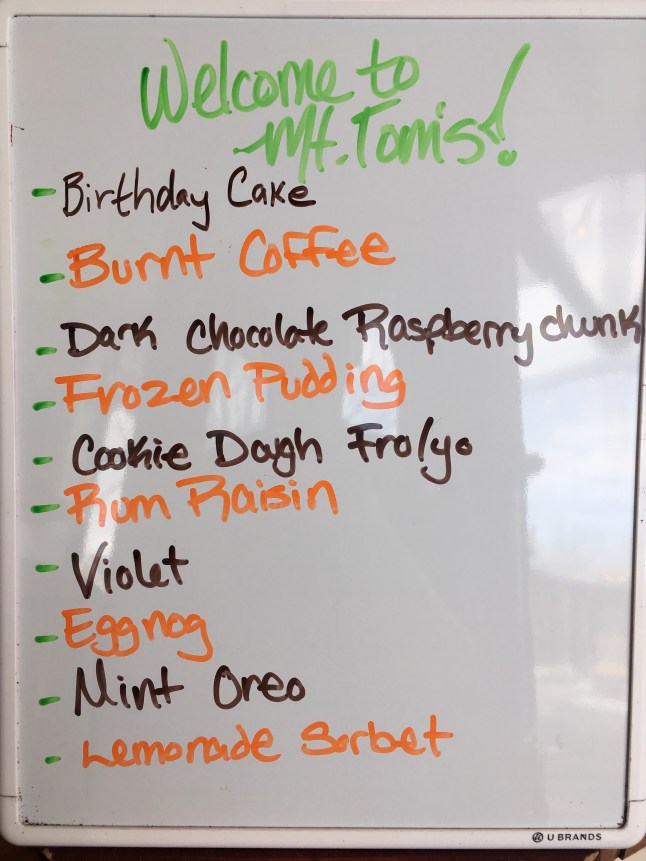 Welcome to
Mt. Tom's!
- Birthday Cake
- Burnt Coffee
- Dark Chocolate Raspberry chunk
- Frozen Pudding
- Cookie Dough Fro/yo
- Rum Raisin
- Violet
- Eggnog
- Mint Oreo
- Lemonade Sorbet
U BRANDS